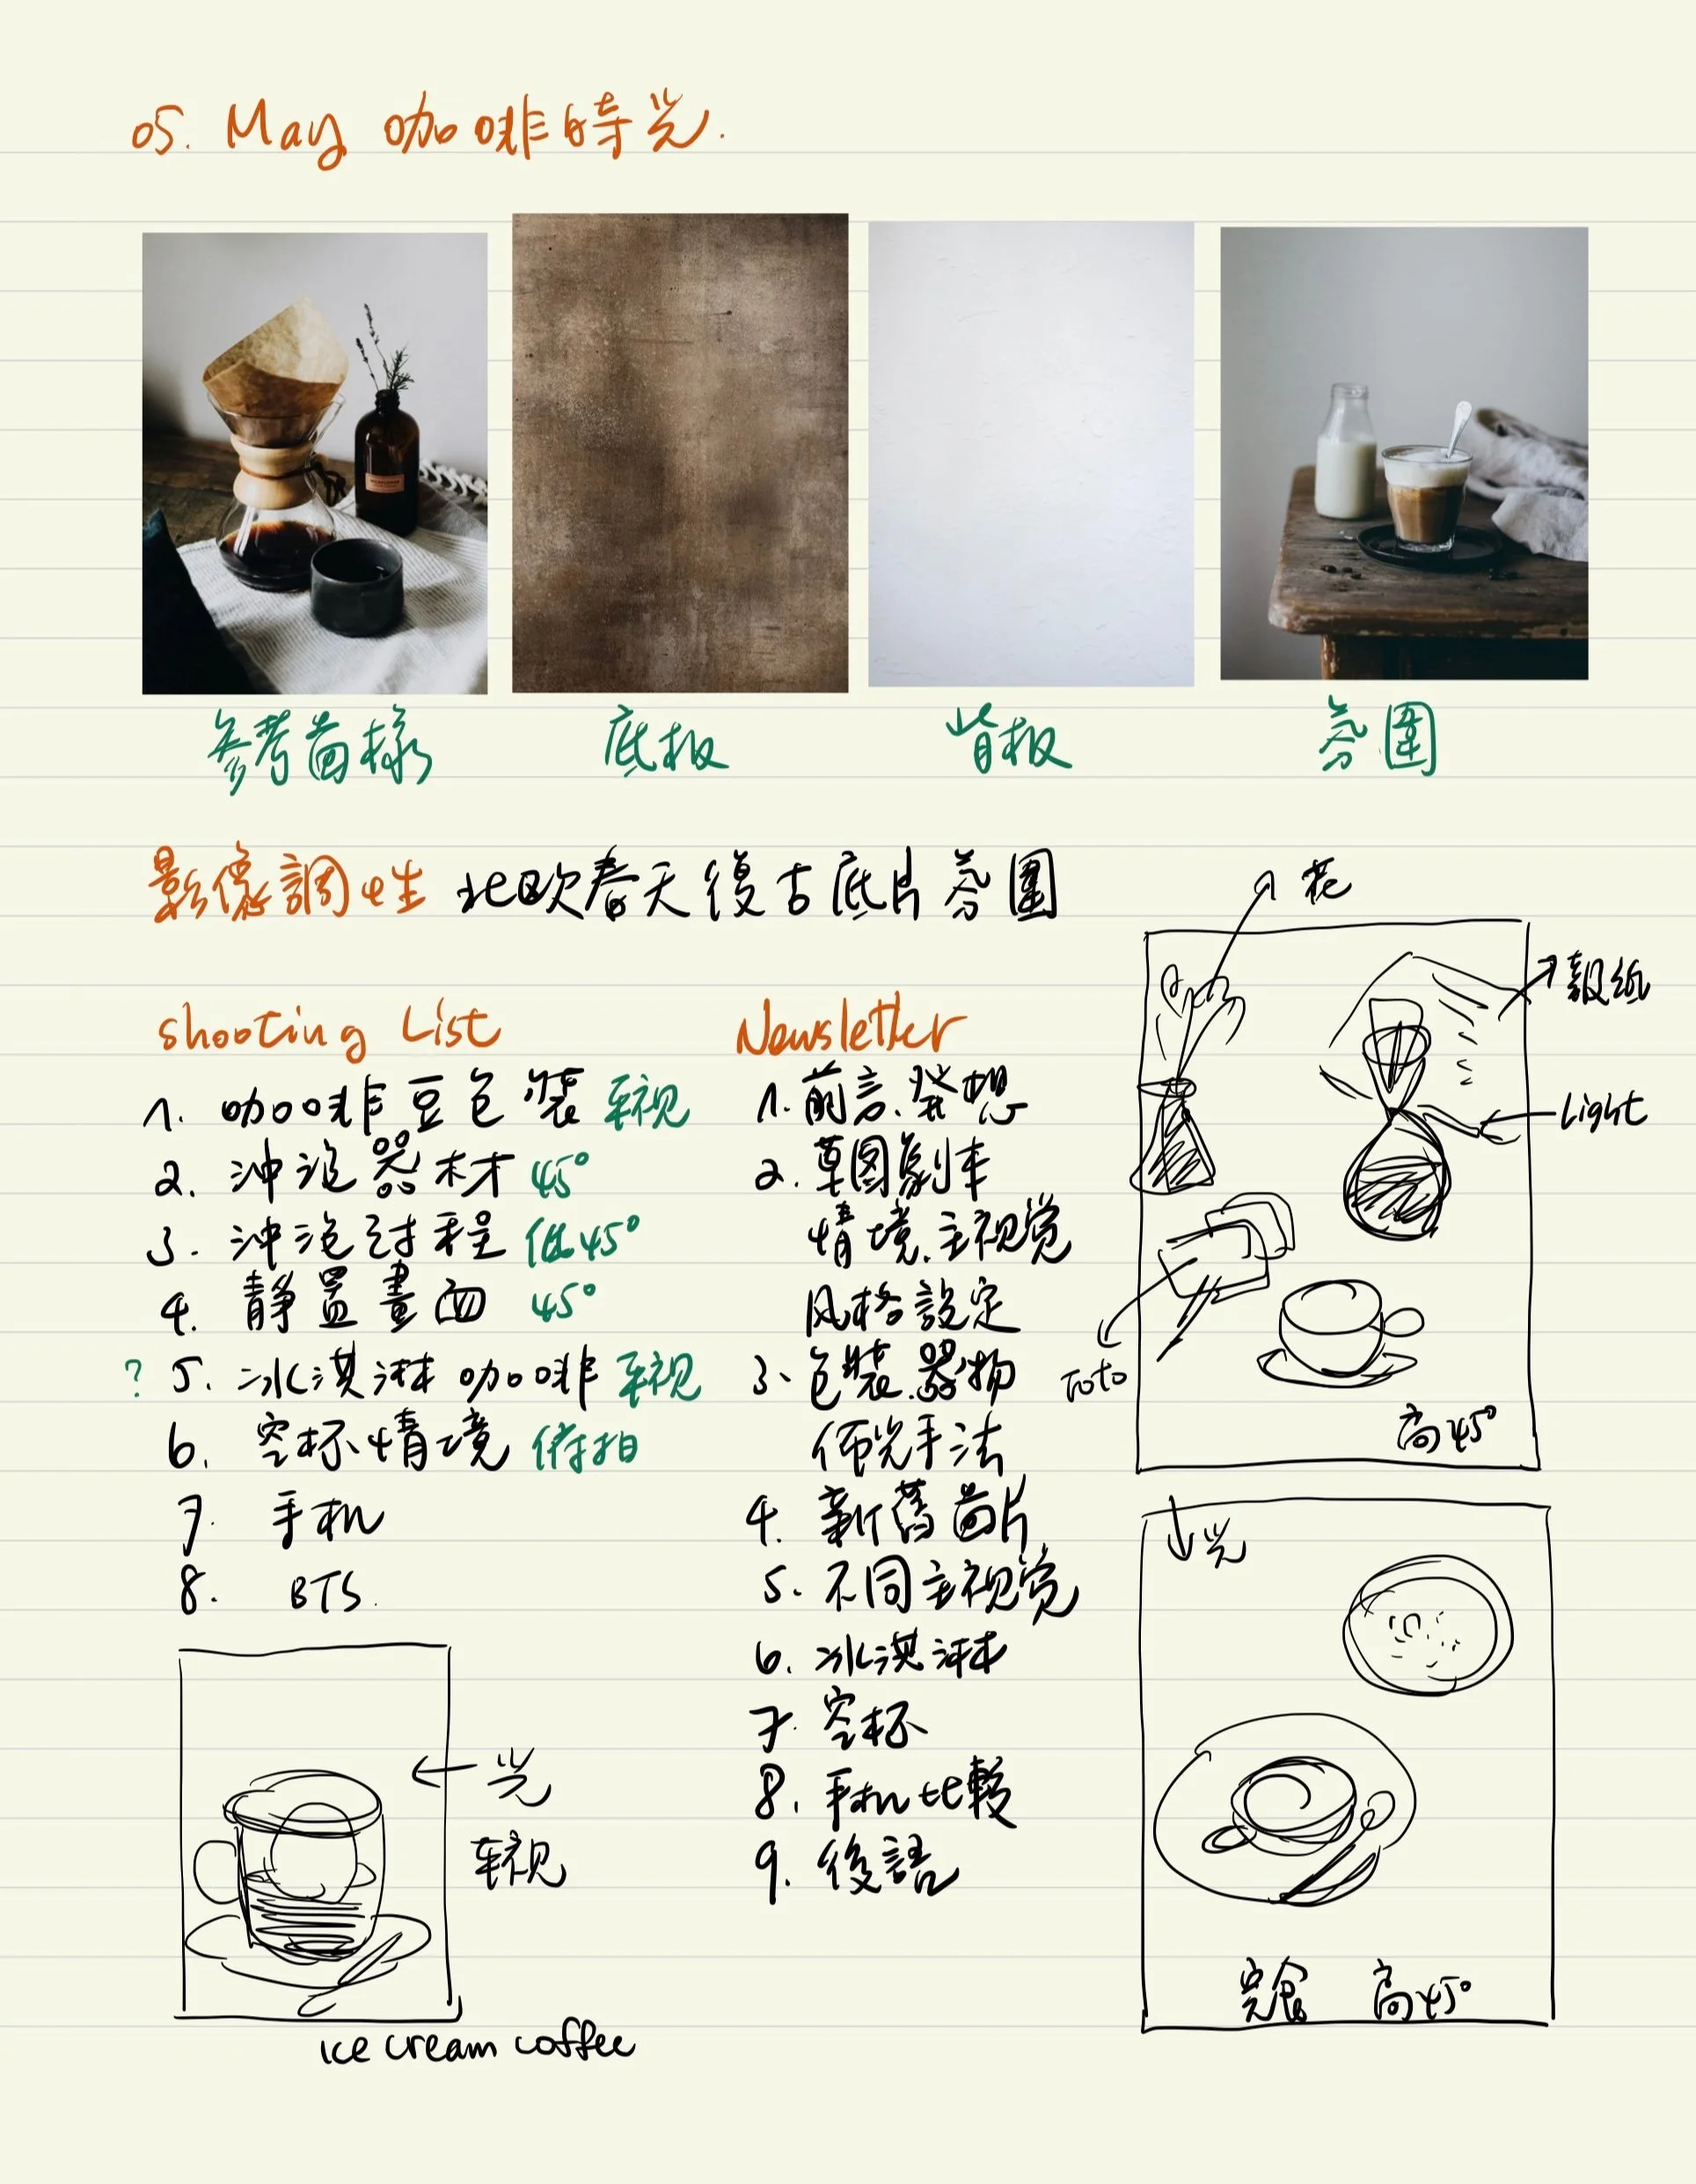 05. May 咖啡時光.
參考圖樣
底板
背板
氛圍
影像調性 北欧春天復古底片氛圍
Shooting List
1. 咖啡豆包裝 平視
2. 沖泡器材 45°
3. 沖泡过程 低45°
4. 靜置畫面 45°
? 5. 冰淇淋咖啡 平視
6. 空杯情境 俯拍
7. 手机
8. BTS.
← 光
平視
ice cream coffee
Newsletter
1. 前言、發想
2. 草图劇本
情境、主視覚
风格設定
3、包裝、器物
佈光手法
4. 新舊圖片
5. 不同主視覚
6. 冰淇淋
7. 空杯
8. 手机比較
9. 後語
花
報紙
Light
Foto
高45°
光
完食 高45°